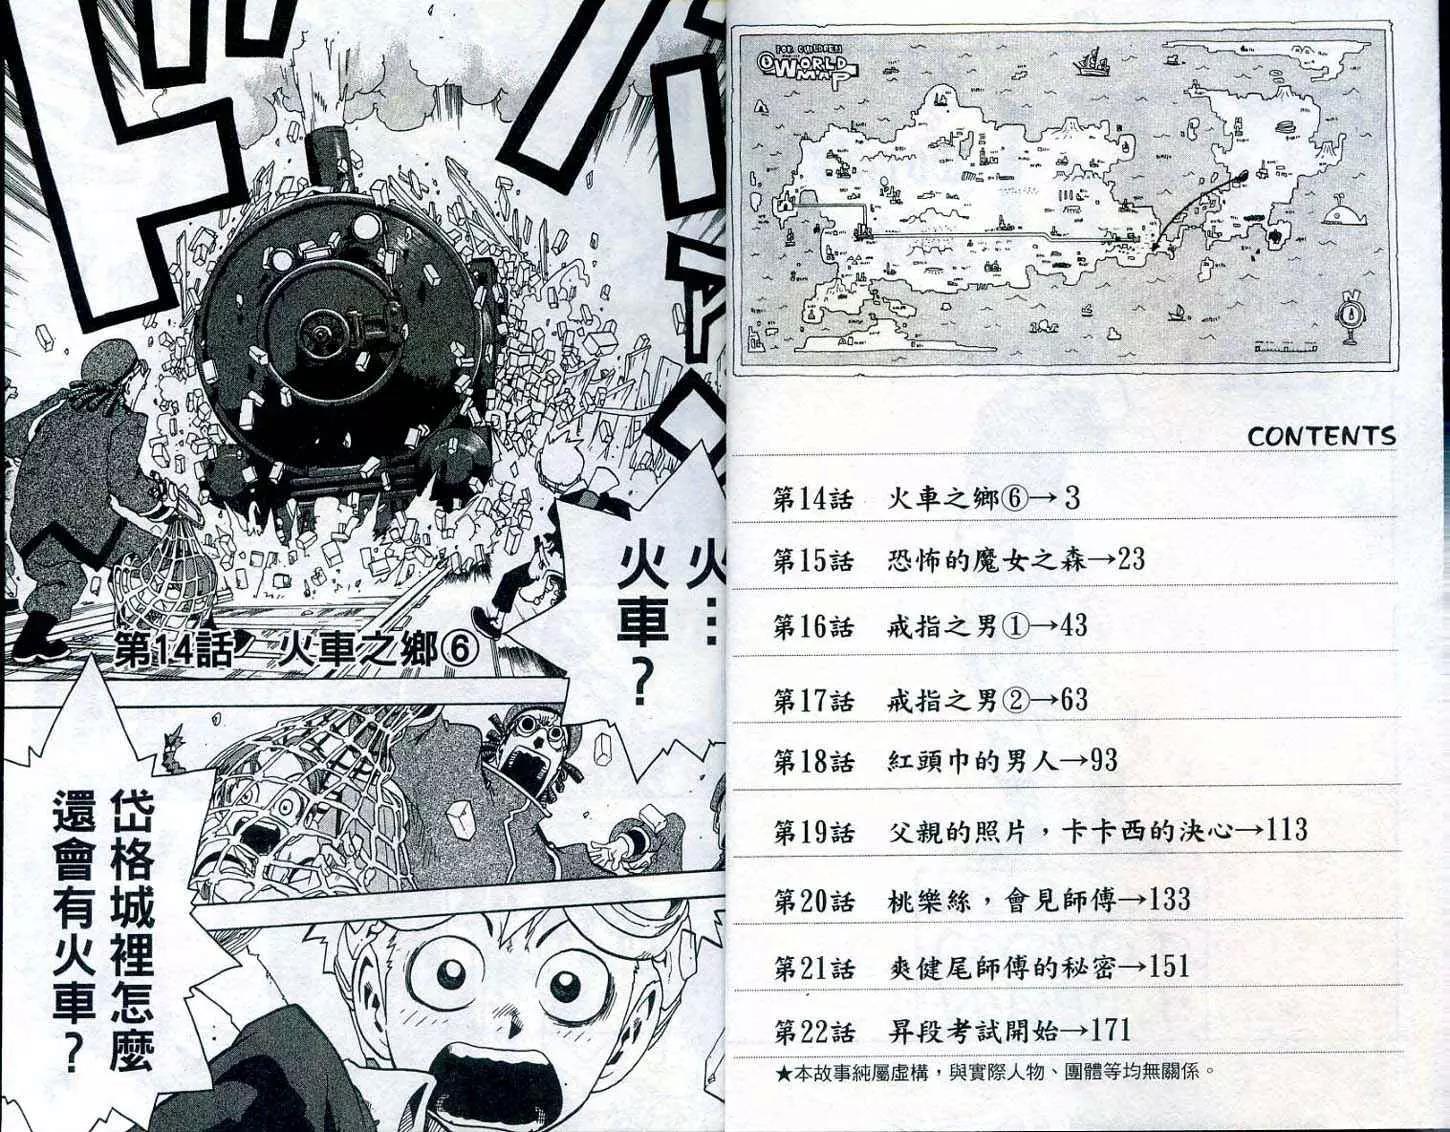 FOR CHILDREN
WORLD
MAP
N
CONTENTS
第14話 火車之鄉⑥→3
第15話 恐怖的魔女之森→23
第16話 戒指之男①→43
第17話 戒指之男②→63
第18話 紅頭巾的男人→93
第19話 父親的照片，卡卡西的決心→113
第20話 桃樂絲，會見師傅→133
第21話 爽健尾師傅的秘密→151
第22話 昇段考試開始→171
★本故事純屬虛構，與實際人物、團體等均無關係。
火…
火車？
第14話 火車之鄉⑥
岱格城裡怎麼
還會有火車？